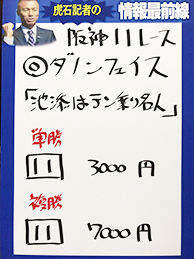 虎石記者の
情報最前線
阪神11レース
◎ダノンフェイス
「池添はテン乗り名人」
単勝
11 3000円
複勝
11 7000円